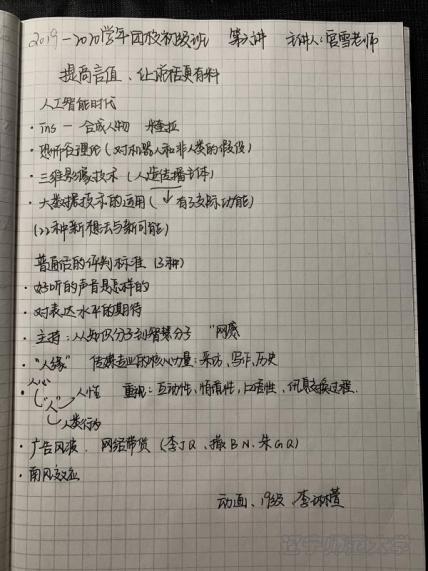 2019-2020学年团校初级班 第六讲 主讲人:宫雪老师
提高言值、让流话更有料
人工智能时代
· ins — 合成人物
· 恐怖谷理论(对机器人和非人类的假设)
· 三维影像技术(人造传播主体)
· 大数据技术的运用(↓有了实际功能)
(22种新想法与新可能)
普通话的评判标准(3种)
· 好听的声音是怎样的
· 对表达水平的期待
· 主持:从知识分子到智慧分子 "网感
· "人缘" 传媒专业的核心力量:采访、写作、历史
人心
· "人" 人性 重视:互动性、情绪性、口语性、信息交换过程.
人类行为
· 广告风波、网络带货(李JQ、撒BN、朱GQ)
· 南风效应
动画、19级、李
辽宁师范大学